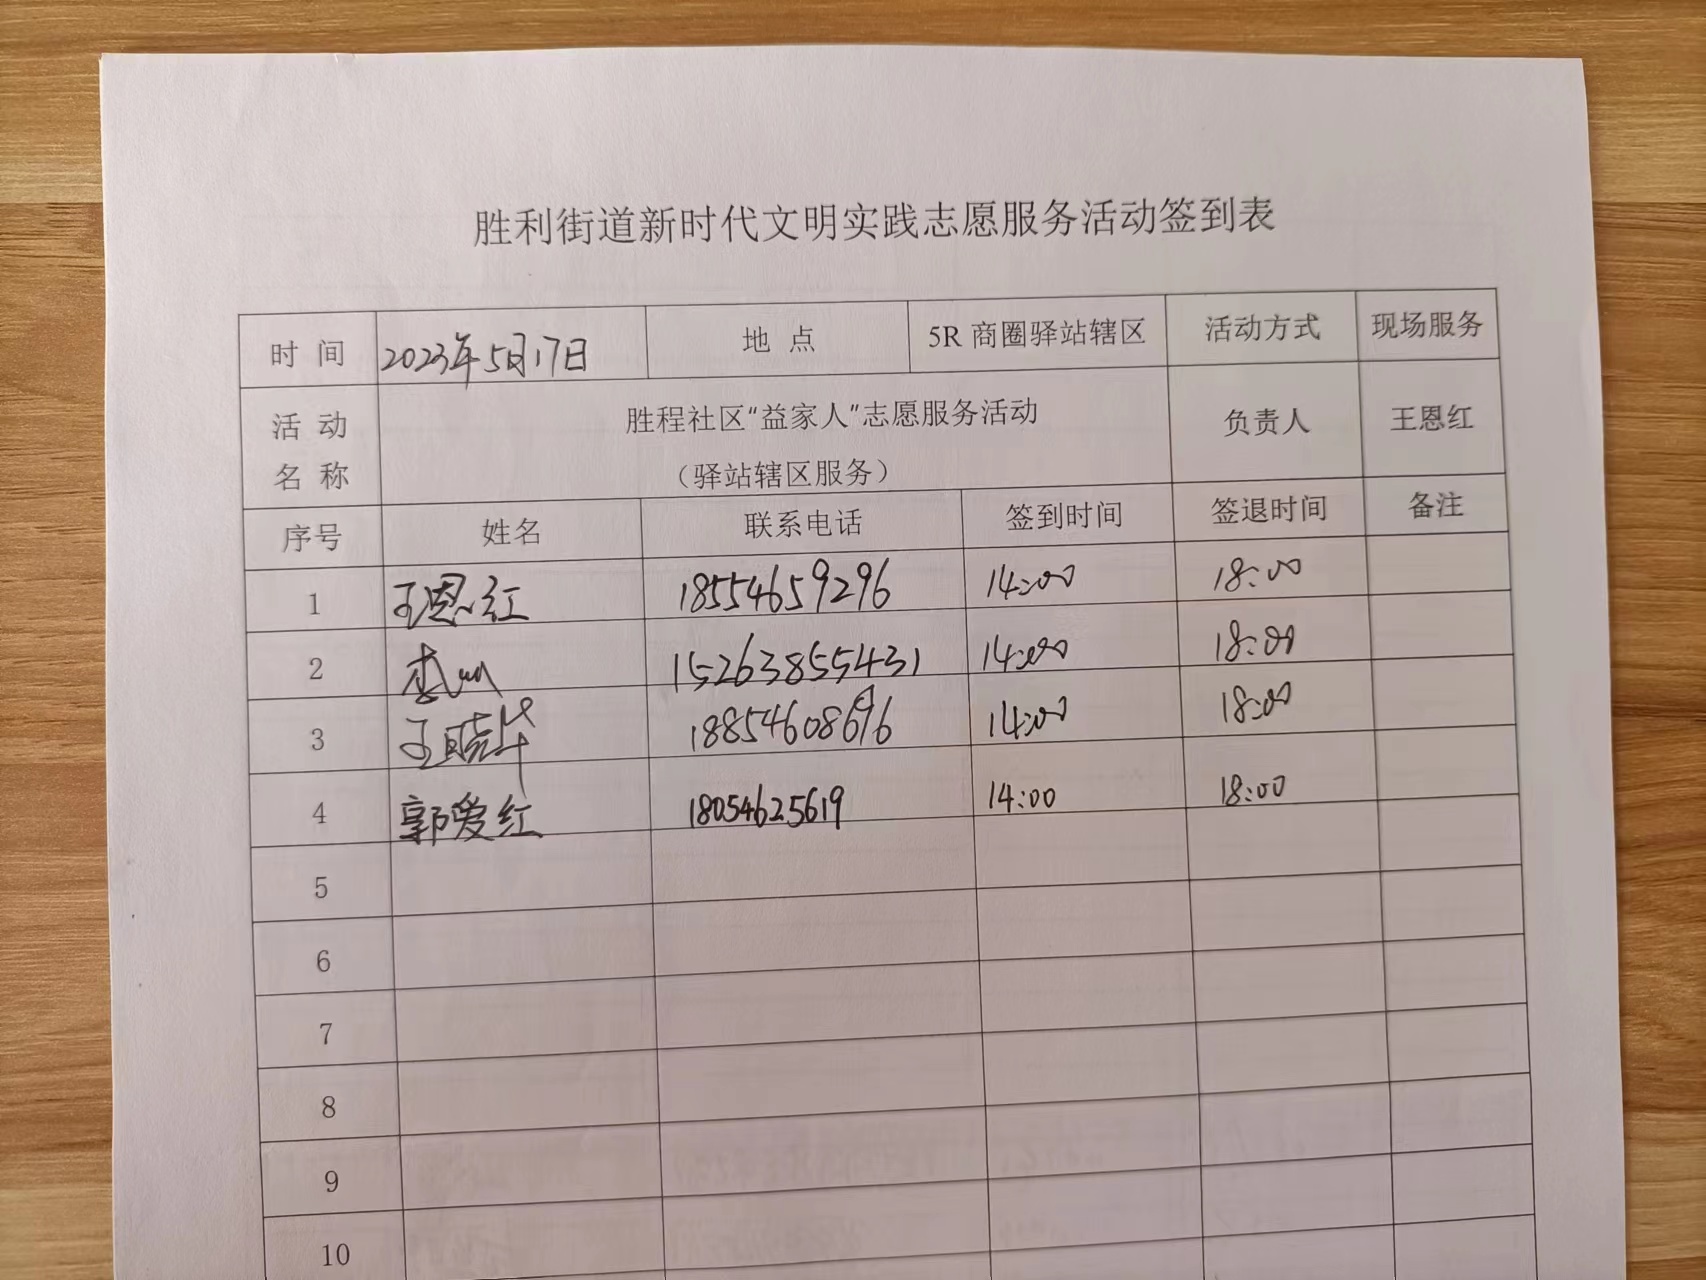 胜利街道新时代文明实践志愿服务活动签到表
时 间 2023年5月17日 地 点 5R 商圈驿站辖区 活动方式 现场服务
活 动 名 称 胜程社区“益家人”志愿服务活动 负责人 王恩红
（驿站辖区服务）
序号 姓名 联系电话 签到时间 签退时间 备注
1 王恩红 18554659296 14:00 18:00
2 李 15263855431 14:00 18:00
3 王晓华 18854608696 14:00 18:00
4 郭爱红 18054625619 14:00 18:00
5
6
7
8
9
10